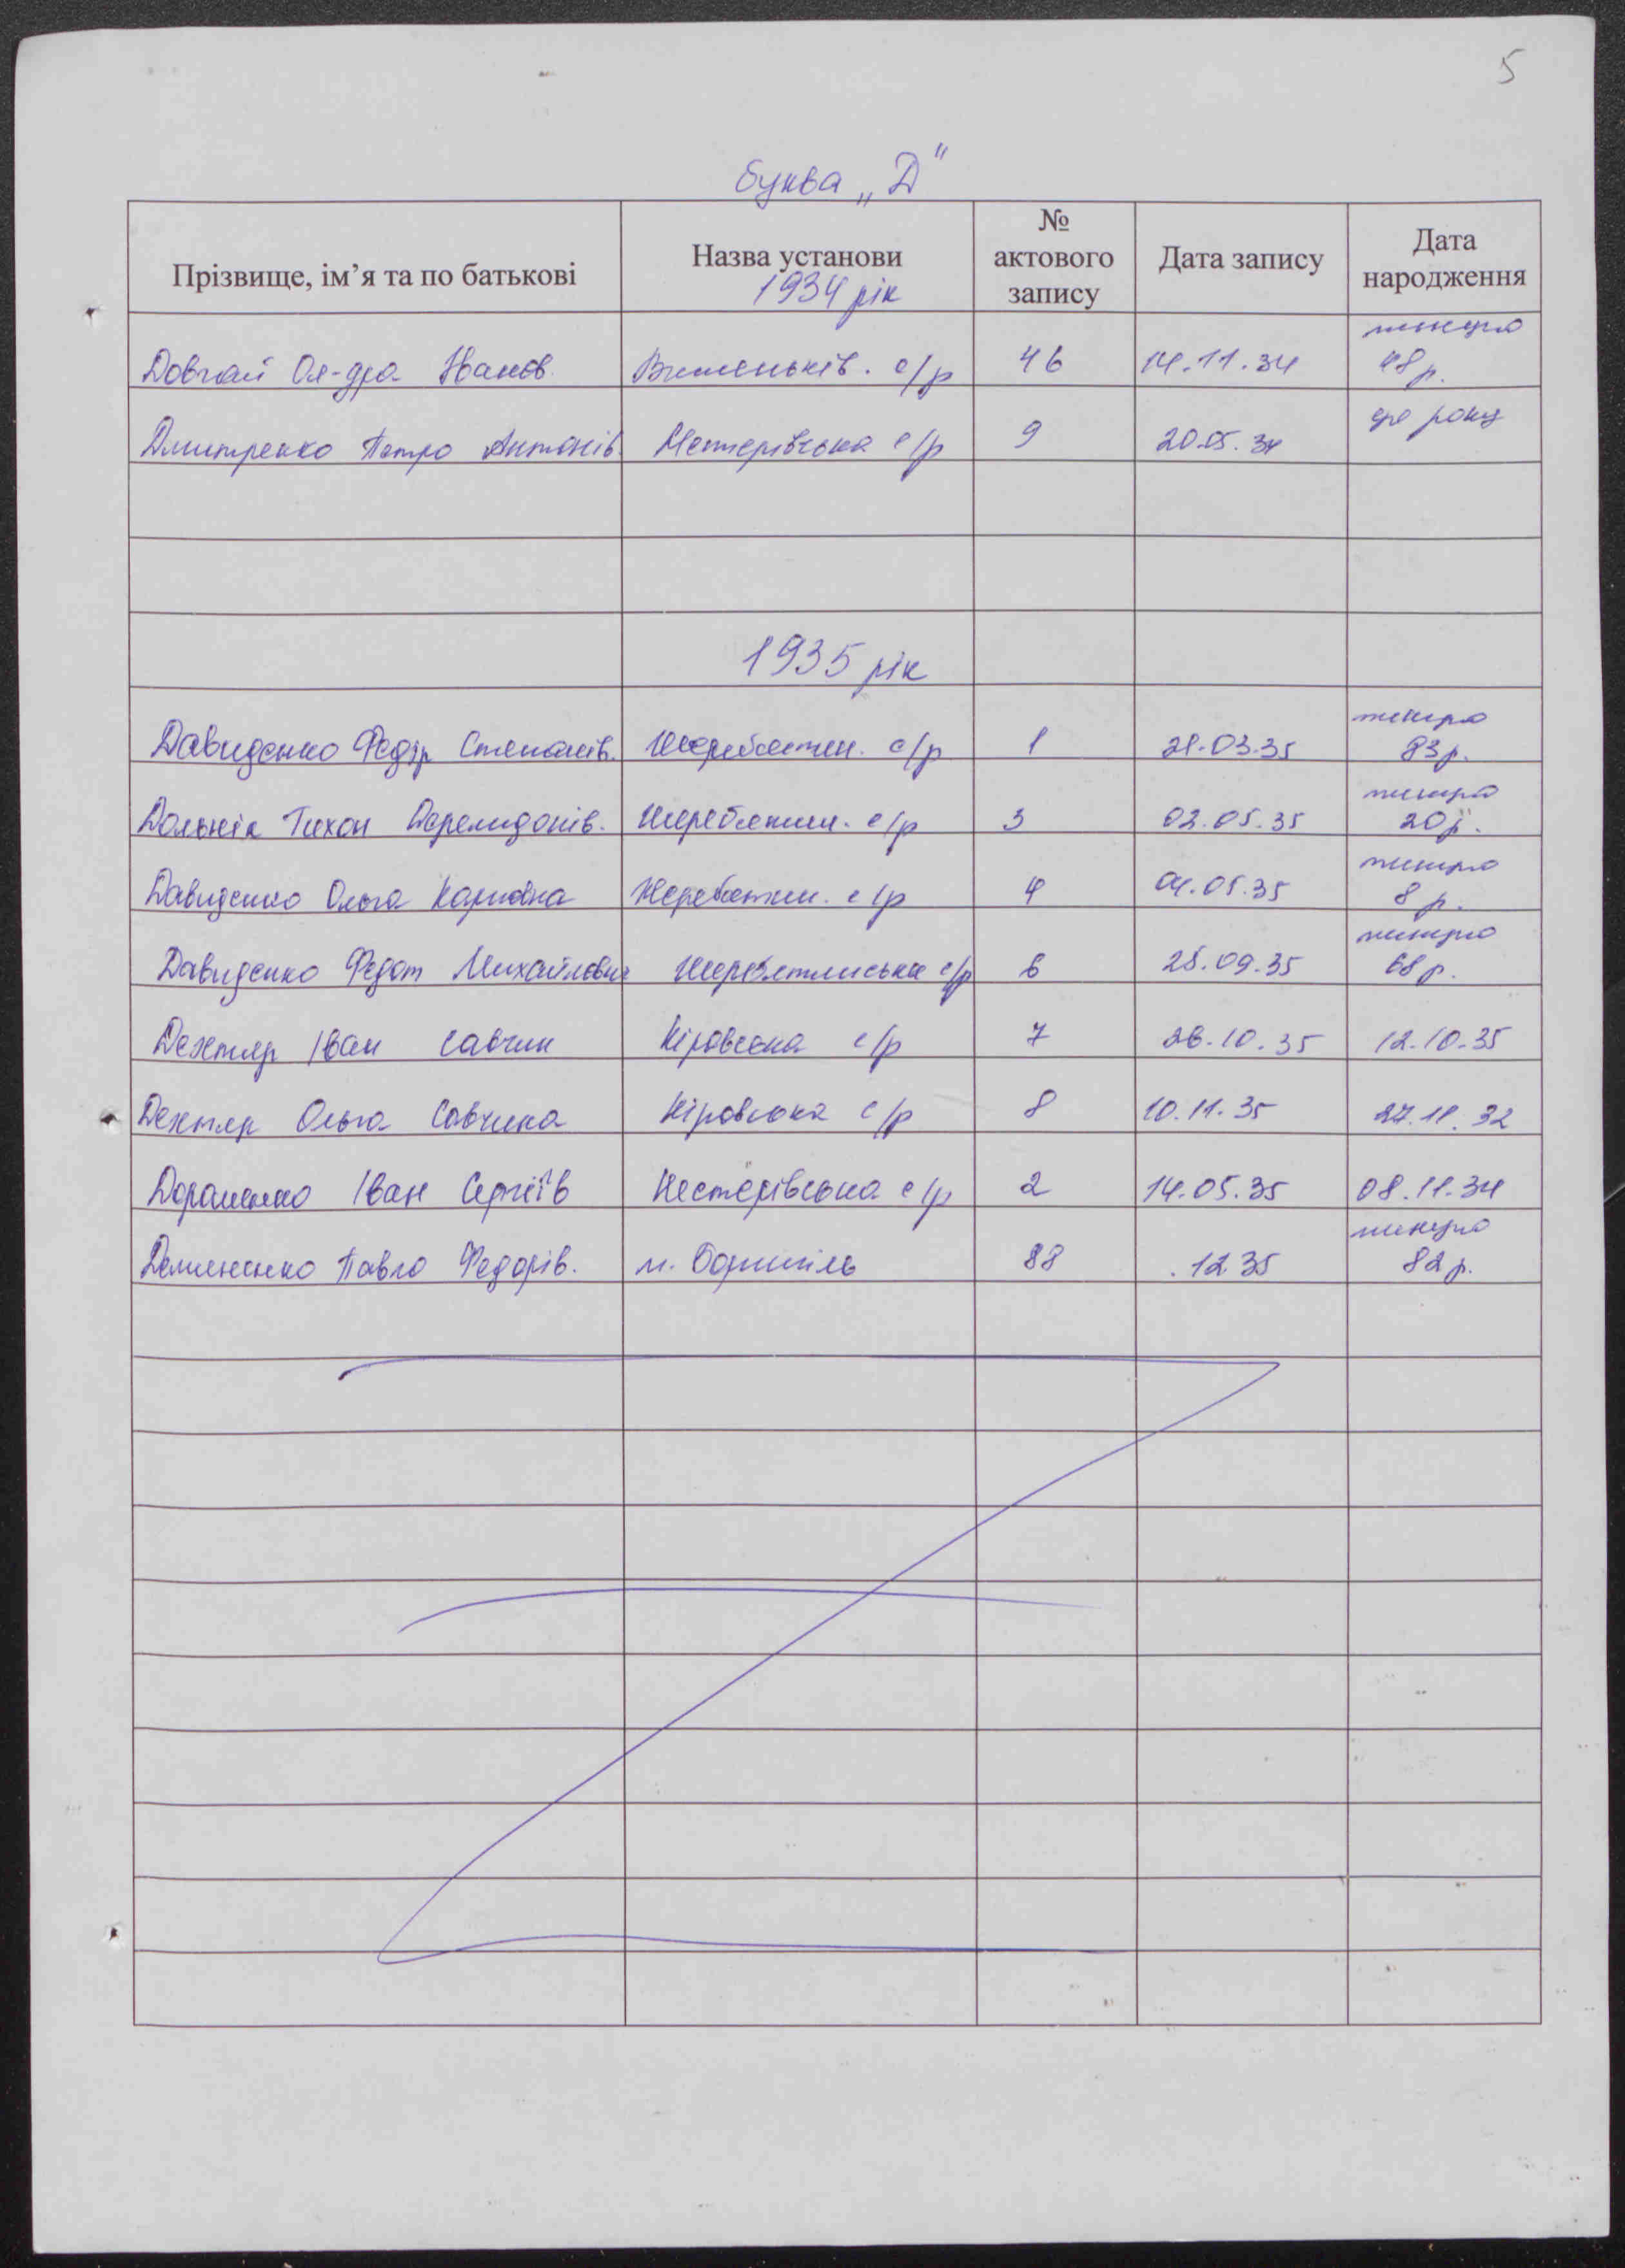 5
буква „Д"
Прізвище, ім'я та по батькові Назва установи 1934 рік № актового запису Дата запису Дата народження
Довгай Ол-дра Іванів. Вишеньків. с/р 46 14.11.34 48 р.
Дмитренко Петро Антонів. Нестерівська с/р 9 20.05.34 до року
1935 рік
Давиденко Федір Степанів. Жеребятин. с/р 1 21.03.35 83 р.
Тихон Жеребятин. с/р 3 02.05.35 20 р.
Давиденко Ольга Карпівна Жеребятин. с/р 4 04.05.35 8 р.
Давиденко Федот Михайлович Жеребятинська с/р 6 25.09.35 68 р.
Дехтяр Іван Савчин Кіровська с/р 7 26.10.35 12.10.35
Дехтяр Ольга Савчина Кіровська с/р 8 10.11.35 27.11.32
Дорошенко Іван Сергіїв Нестерівська с/р 2 14.05.35 08.11.34
Павло Федорів. м. Бориспіль 88 .12 35 82 р.